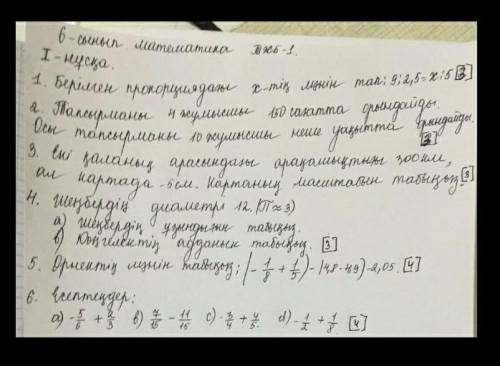 6-сынып математика ТЖБ-1.
I-нұсқа.
1. Берілген пропорциядағы х-тің мәнін тап: 9:2,5=х:5 [3]
2. Тапсырманы 4 жұмысшы 150 сағатта орындайды.
Осы тапсырманы 10 жұмысшы неше уақытта орындайды. [3]
3. Екі қаланың арасындағы арақашықтығы 300 км,
ал картада -5 см. Картаның масштабын табыңыз. [3]
4. Шеңбердің диаметрі 12. (П≈3)
а) Шеңбердің ұзындығын табыңыз.
в) Дөңгелектің ауданын табыңыз. [3]
5. Өрнектің мәнін табыңыз; |-1/8 + 1/5| - (48-49) - 2,05. [4]
6. Есептеңдер:
а) -5/6 + 2/3 в) 7/15 - 11/15 с) -3/4 + 4/5 d) -1/2 + 1/8. [4]